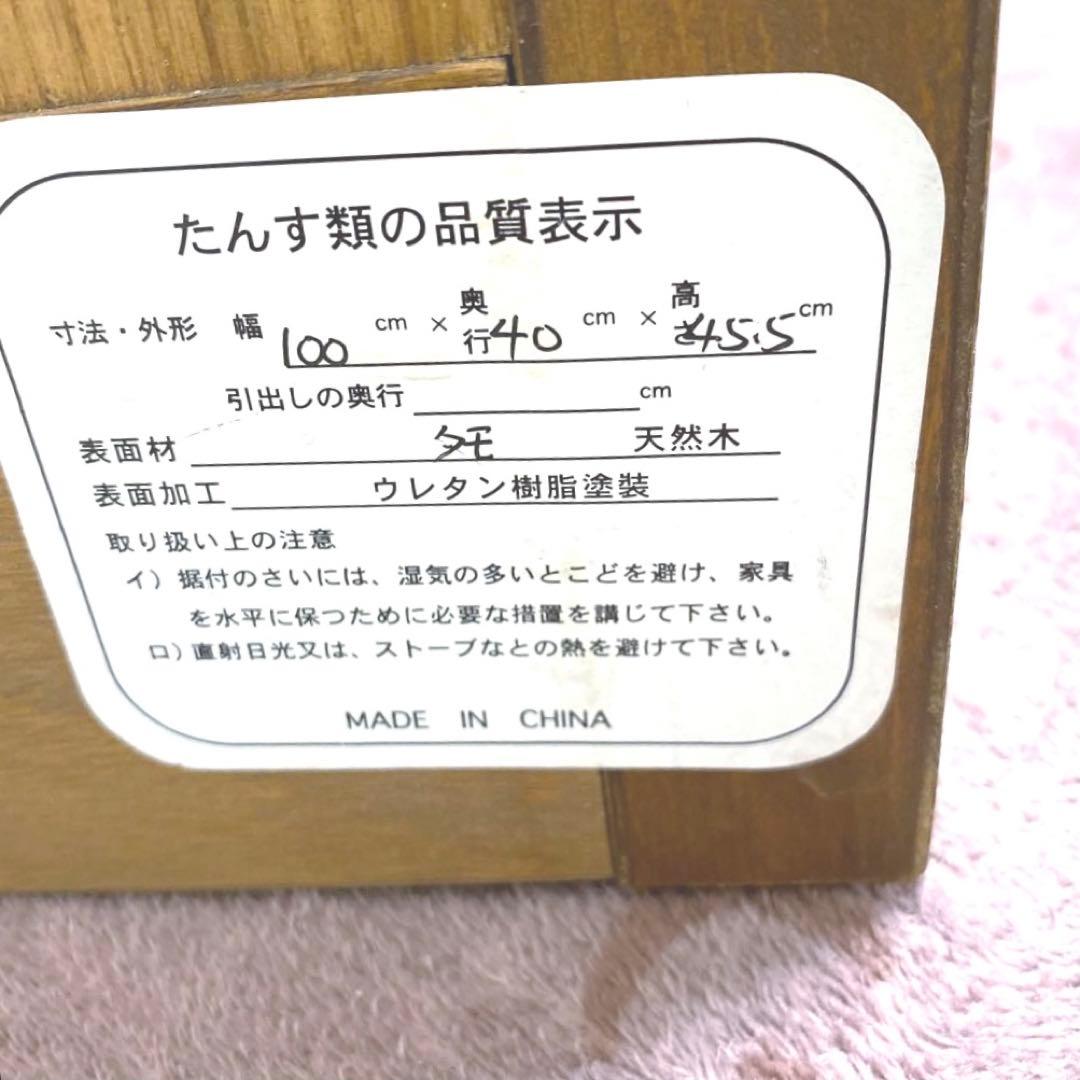 たんす類の品質表示
寸法・外形 幅 100 cm × 奥行 40 cm × 高さ 45.5 cm
引出しの奥行 cm
表面材 タモ 天然木
表面加工 ウレタン樹脂塗装
取り扱い上の注意
イ）据付のさいには、湿気の多いとこどを避け、家具
を水平に保つために必要な措置を講じて下さい。
ロ）直射日光又は、ストーブなとの熱を避けて下さい。
MADE IN CHINA